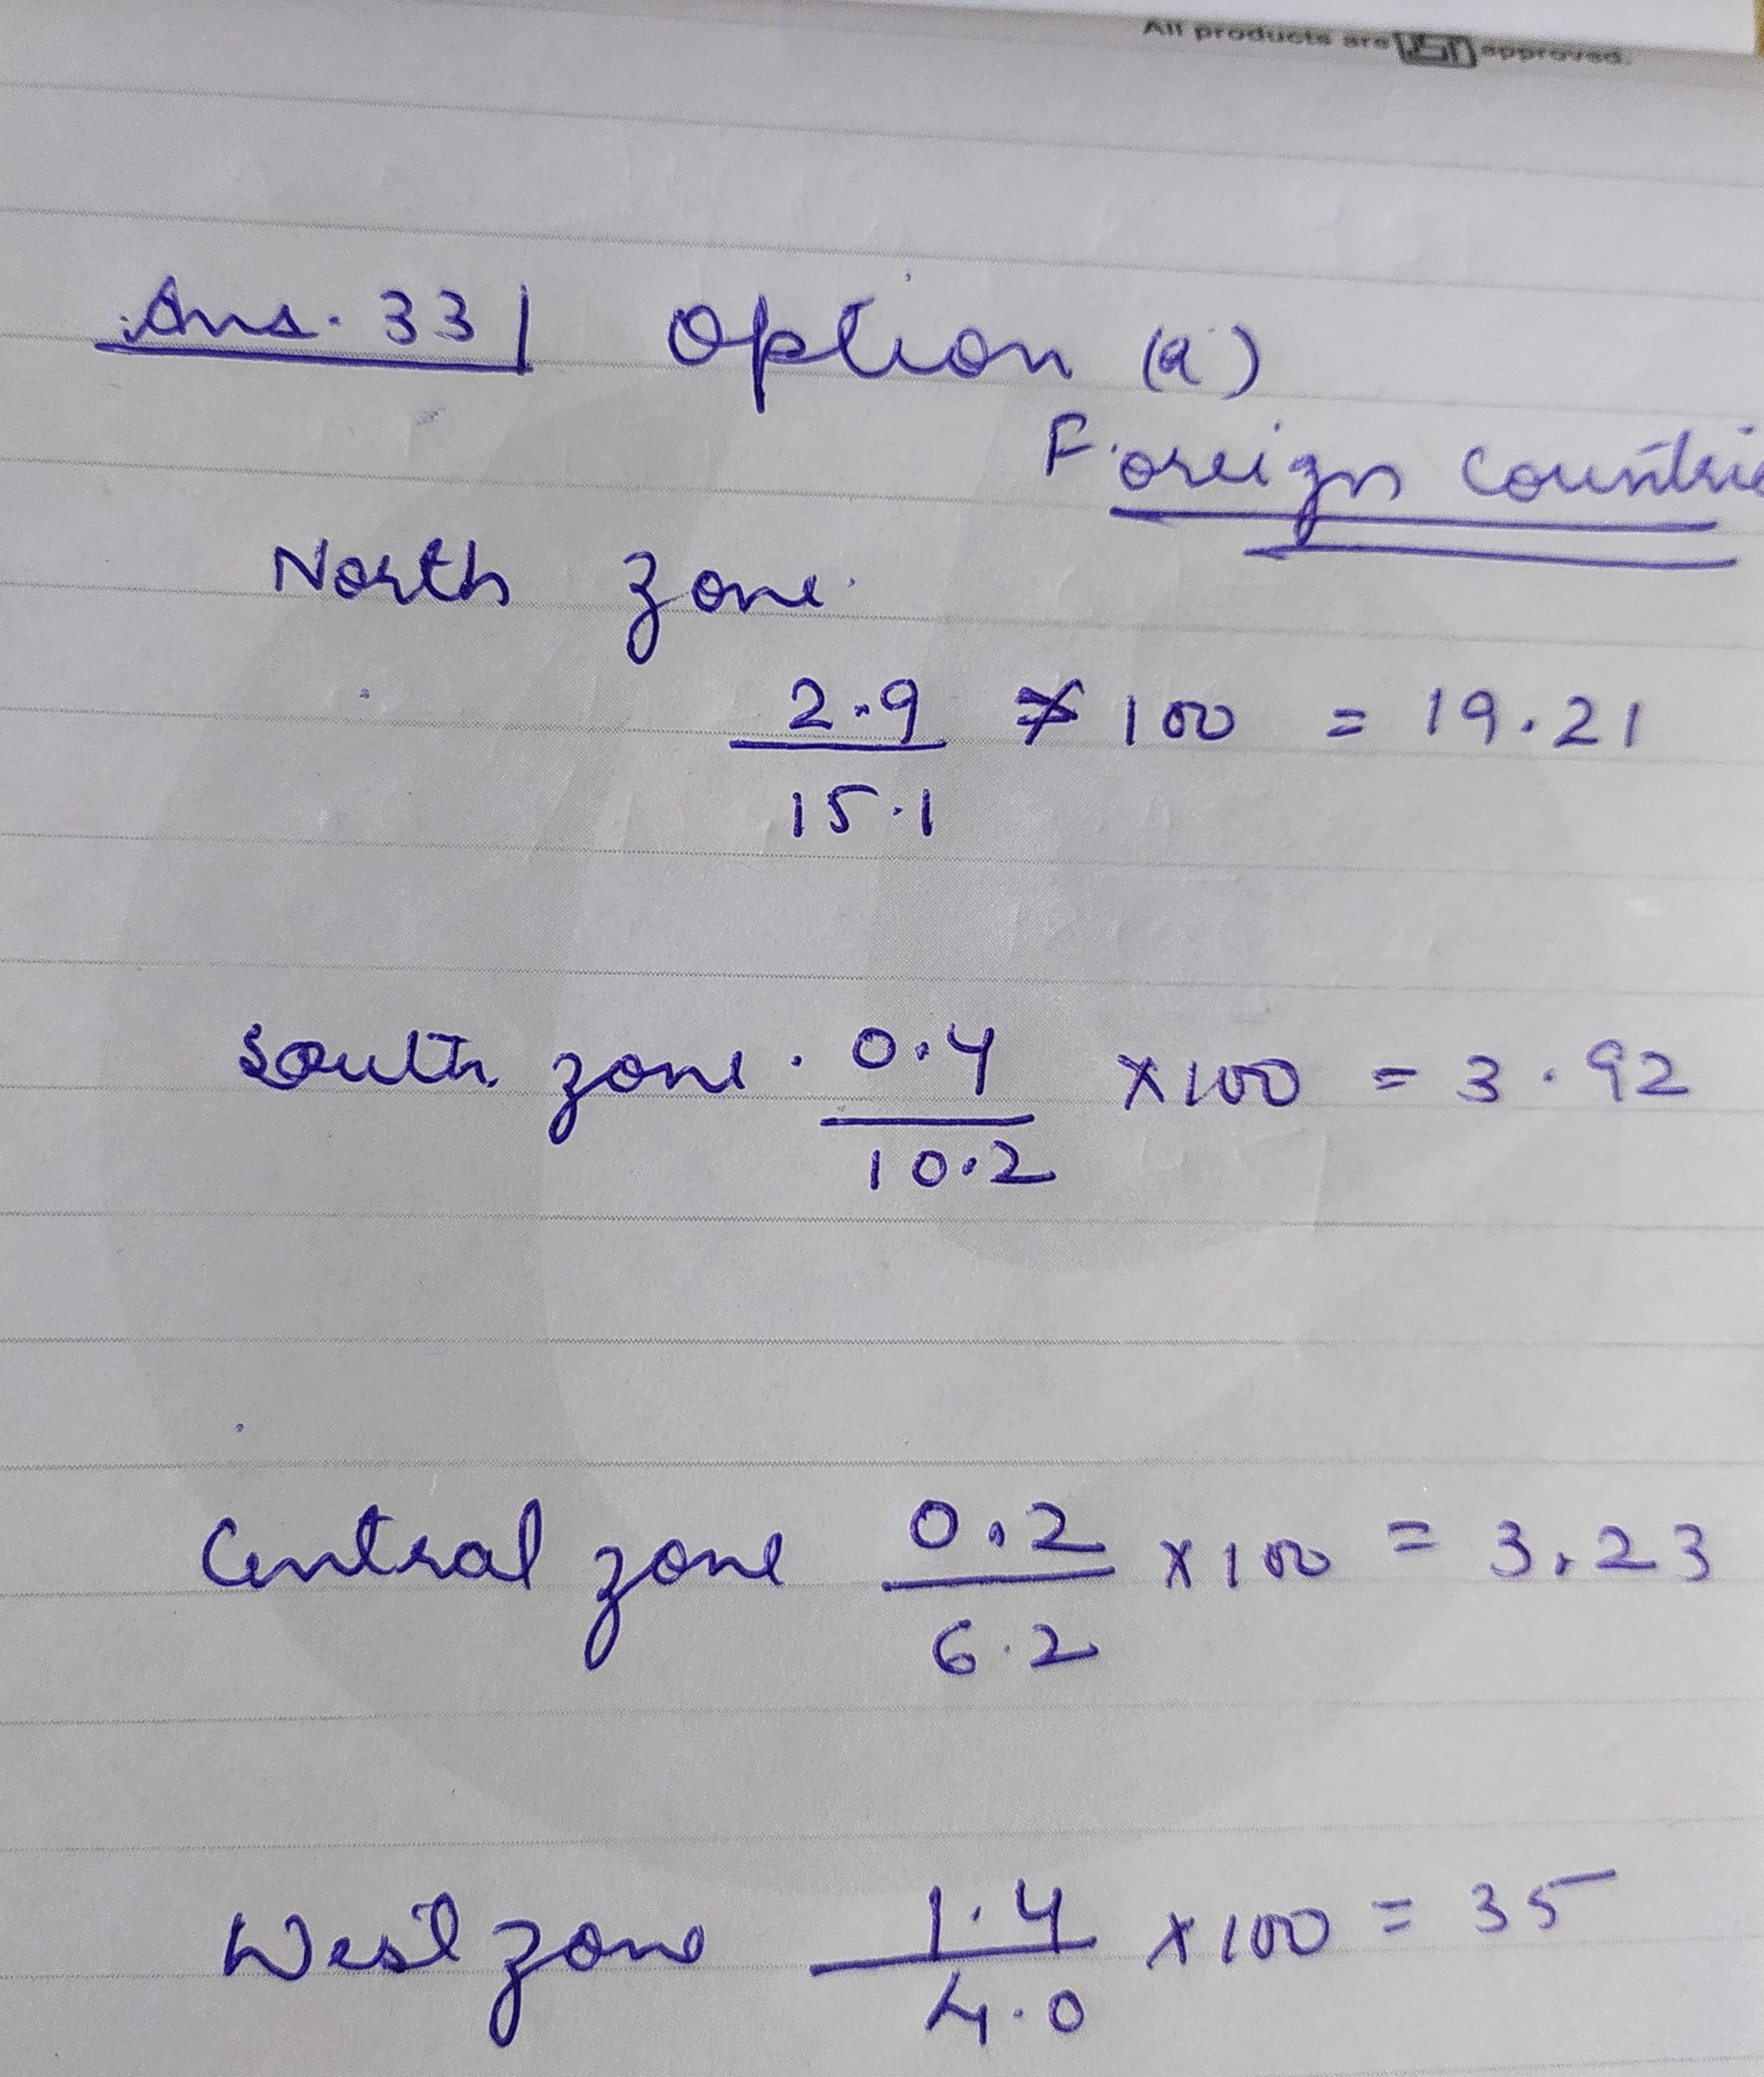 All products are ISI approved.
Ans. 33 Option (a)
Foreign Countrie
North zone
2.9 × 100 = 19.21
15.1
South zone. 0.4 ×100 = 3.92
10.2
Central zone 0.2 ×100 = 3.23
6.2
West zone 1.4 ×100 = 35
4.0